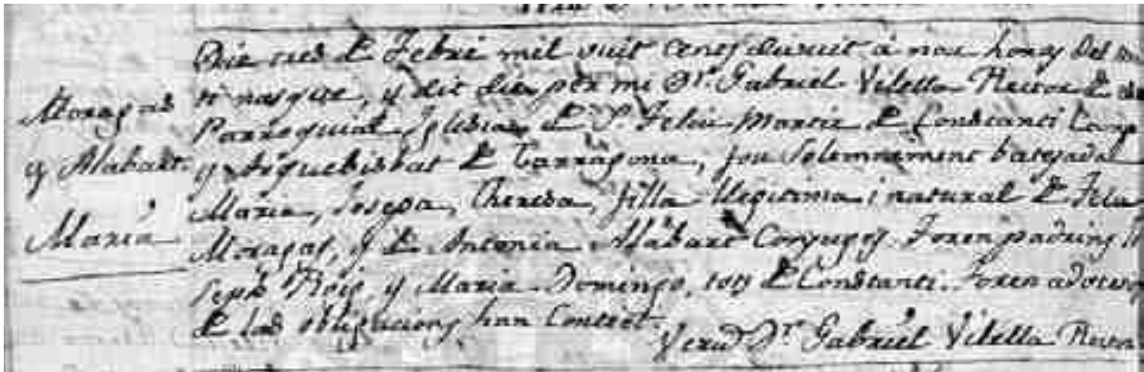 Die tres de Febre mil vuit cens divuit á nou horas del
ti nasque, y dit dia per mi Dr. Gabriel Vilella Rector de
Parroquial Iglesia de St. Feliu Martir de Constanti Camp
y Arquebisbat de Tarragona, fou solemnement batejada
Maria, Josepa, Theresa, filla llegitima i natural de
Moragas, y de Antonia Alabart Conjuges. Foren padrins
seph Roig, y Maria Domingo, tots de Constanti. Foren
de las obligacions han Contret.
Dr. Gabriel Vilella Rector
Moragas
y Alabart.
Maria